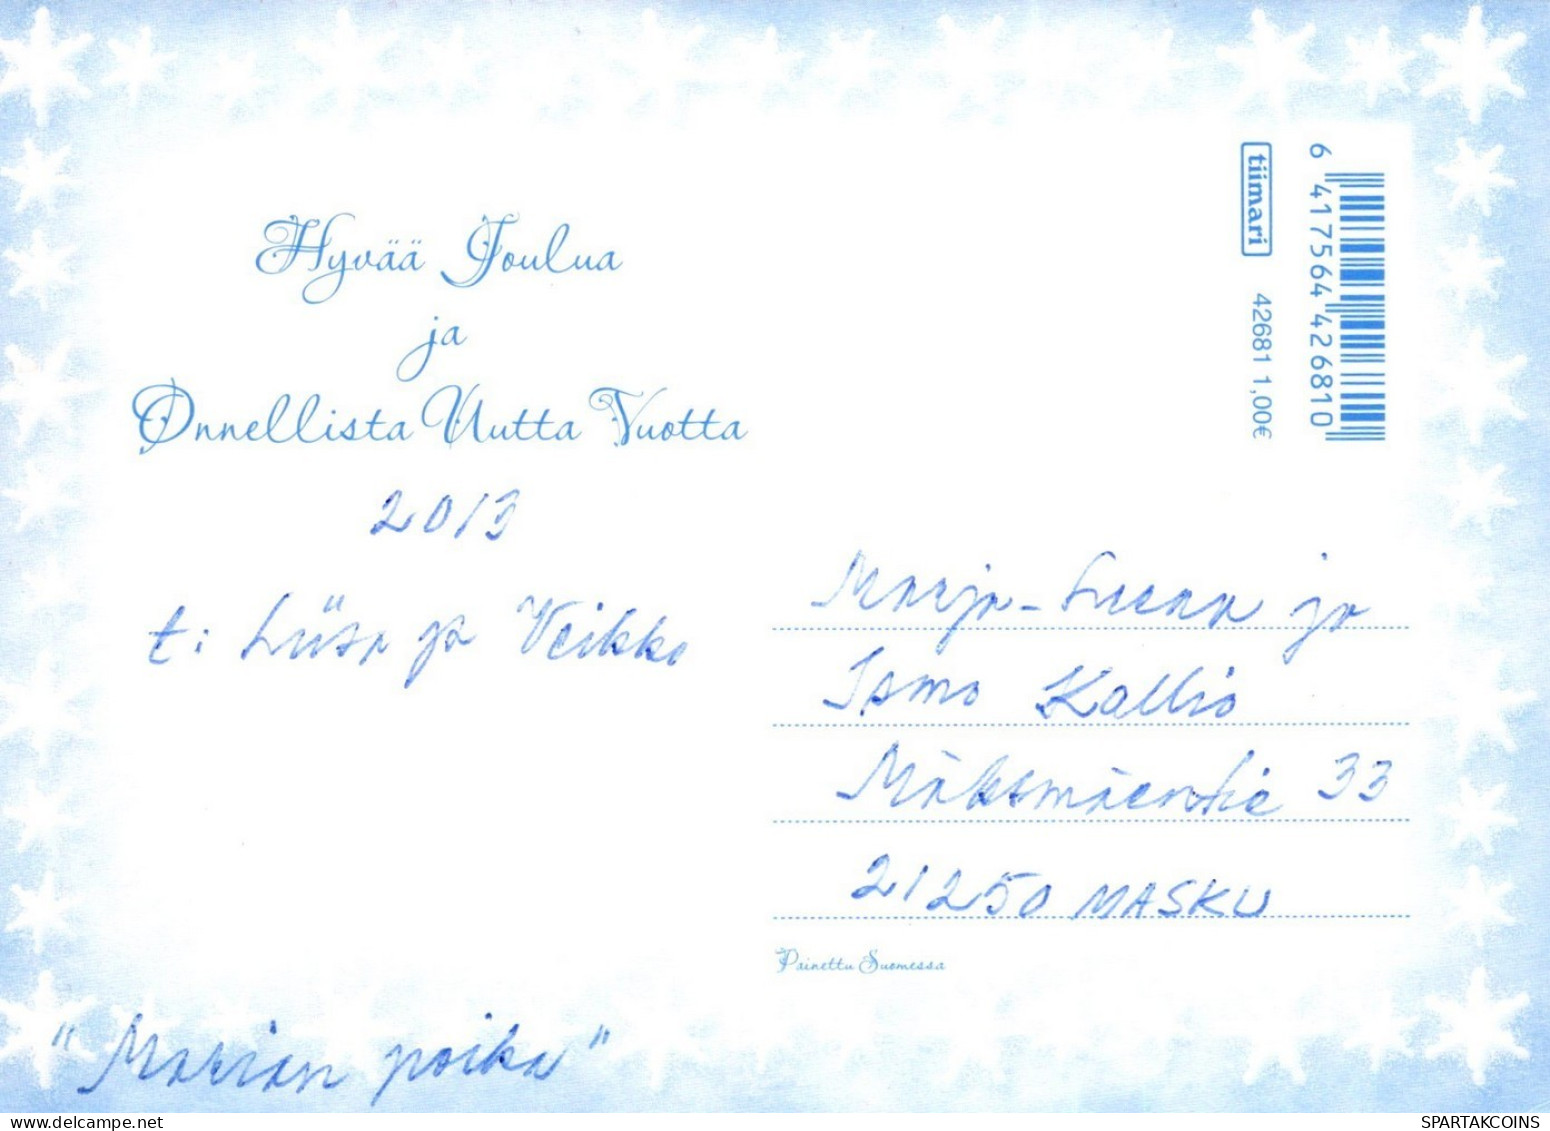 Hyvää Joulua
ja
Onnellista Uutta Vuotta
2013
t: Liisa ja Veikko
"Marian poika"
tiimari
42681 1,00€
6 417564 426810
Marja-Leena ja
Ismo Kallio
Mäksmäentie 33
21250 MASKU
Painettu Suomessa
www.delcampe.net
SPARTAKCOINS